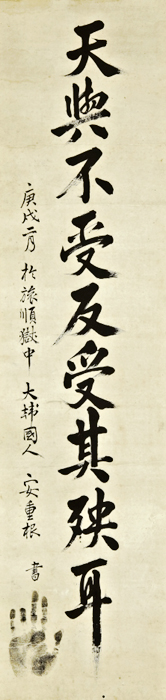 天與不受反受其殃耳
庚戌二月 於旅順獄中 大韓國人 安重根 書